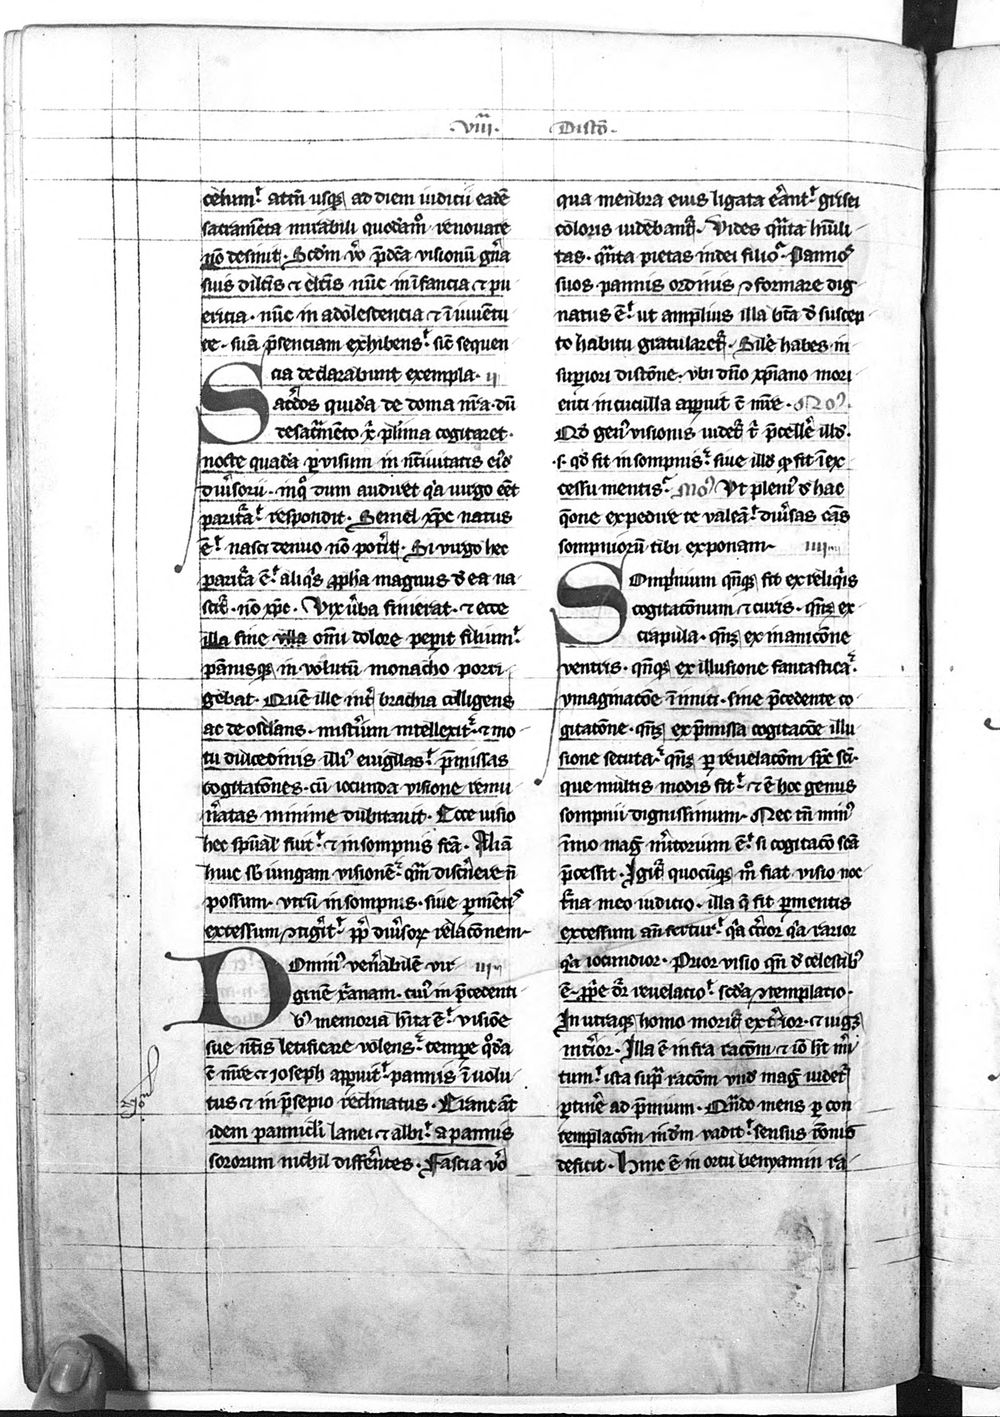 .viii. Distō.
celum⁊ attñ usq₃ ad diem iudicii eadē
sacramēta mirabili quodam̊ renouare
nō desinit. Scdm v̊o p̄dc̄a visionū gñā
suis dilc̄is ⁊ elc̄is nūc in īfancia ⁊ pu
ericia. nūc in adolescencia ⁊ ī iuuētu
te. suā p̄senciam exhibens⁊ sic̄ sequen
cia declarabunt exempla. ii
Sac̄dos quidā de domo nr̄a. dū
de sac̄mēto xͥ pl̄ima cogitaret.
nocte quadā p visum in n̄tiuitatis eiꝰd
diūsorii. inq̊ dum audiret qͥa uirgo eēt
paritͣa⁊ respondit. Semel xp̄c natus
ē⁊ nasci denuo nō pot̄it. Si uirgo hec
paritͣa ē⁊ aliqͥs ꝓpha magnus d̄ ea na
scit᷑. nō xp̄c. Vix ūba finierat. ⁊ ecce
illa sine ulla omī dolore pepit filium⁊
pānisq₃ in volutū monacho porri
gebat. Quē ille int᷑ brachia colligens
ac deosc̄lans. mist̄ium intellexit⁊ ⁊ mo
tu dulcedinis illiꝰ euigilās⁊ p̄missas
cogitatōnes. cū iocunda visione remu
n̄atas minime dubitauit. Ecce visio
hec spūal̄ fuit⁊ ⁊ in sompnis fc̄a. Aliā
huic sb̄iungam visionē⁊ qm̄ disc̄nere ñ
possum. vtrū in sompnis. siue p mentꝭ
excessum ꝯtig̊it⁊ ꝓp̄ diūsoꝝ relacōnem.
Dominꝰ ven̄abilē vir iii
ginē xͬanam. cuiꝰ in p̄cedenti
bꝰ memoria hīta ē⁊ visiōe
sue nc̄is letificare volens⁊ tempe q̊dā
ē mr̄e ⁊ ioseph apparuit⁊ pannis ī volu
tus ⁊ in p̄sepio reclinatus. Erant aūt
idem panniculi lanei ⁊ albi⁊ a pannis
sororum nichil diffēntes. Fascia v̊o
qua menbra eius ligata ēant⁊ grisei
coloris uidebant᷑. Vides qn̄ta hūili
tas. qn̄ta pietas in dei filio⁊ Pannoꝭ
suos pannis ordinis ꝯformare dig
natus ē⁊ ut amplius illa bt̄a d̄ suscep
to habitu gratularet᷑. Sil̄e habes in
supiori distōne. vbi dn̄o xp̄iano mori
enti in cuculla apparuit c̄ mr̄e. Noꝰ.
Qd̄ genꝰ visionis uidet᷑ t̄ p̄celle᷑ illd̄.
.s. qd̄ fit in sompnis⁊ siue illd̄ qd̄ fit ī ex
cessu mentis⁊ Moꝰ Vt pleniꝰ d̄ hac
qōne expedire te valeā⁊ diūsas cās
sompniorū tibi exponam. iiii
Sompnium qn̄q₃ fit ex reliqͥis
cogitatōnum ⁊ curis. qn̄q₃ ex
crapula. qn̄q₃ ex inanicōne
ventris. qn̄q₃ ex illusione fantastica⁊
ymaginacōe inimici. sine p̄cedente co
gitatōne. qn̄q₃ ex p̄missa cogitacōe illu
sione secuta⁊ qn̄q₃ p reuelacōm sp̄c sc̄i
que multis modis fit⁊ ⁊ ē hoc genus
sompnii dignissimum. Nec tn̄ minꝰ
īmo mag᷑ m̄itorium ē⁊ si cogitacō sc̄a
p̄cessit. Igit᷑ quocūq₃ m̊ fiat visio noc
t̄na meo iudicio. illa q̄ fit p mentis
excessum an̄fertur⁊ qͥa c̄cior qͥa rarior
qͥa iocundior. Prior visio qn̄ d̄ celestibꝰ
ē. ꝓp̄e dr̄ reuelacio⁊ scd̄a ꝯtemplacio.
In utraq₃ homo morit᷑ ext̄ior. ⁊ uigꝫ
int̄ior. Illa ē infra racōm ⁊ iō hт̄ mi
tum⁊ ista supͣ racōm vnd̄ mag᷑ uidet᷑
ptinē ad p̄mium. Qn̄do mens p con
templacōm in dm̄ vadit⁊ sensus rōnis
deficit. Hinc ē in ortu benyamin ra